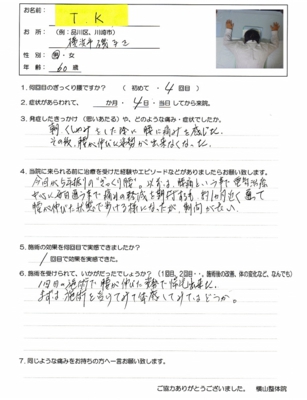 お名前： T.K
お 所：（例：品川区、川崎市）
横浜市磯子区
性 別：男・女
年 齢：60 歳
1. 何回目のぎっくり腰ですか？（ 初めて ・ 4 回目 ）
2. 症状があらわれて、 か月・ 4 日・ 当日 してから来院。
3. 発症したきっかけ（思いあたる）や、どのような痛み・症状でしたか。
朝くしゃみをした際に腰に痛みを感じた。
その後、腰が伸びた姿勢が出来なくなった。
4. 当院に来られる前に治療を受けた経験やエピソードなどがありましたらお願い致します。
今回が5年振りの"ぎっくり腰"。
腰が伸びた状態で歩ける様になったが、
5. 施術の効果を何回目で実感できましたか？
1 回目で効果を実感できた。
6. 施術を受けられて、いかがだったでしょうか？（1回目、2回目・・。施術後の改善、体の変化など、なんでも）
1回目の施術で腰が伸びた姿勢で
まずは施術を受けてみて体感してみてはどうか。
7. 同じような痛みをお持ちの方へ一言お願い致します。
ご協力ありがとうございました。 横山整体院